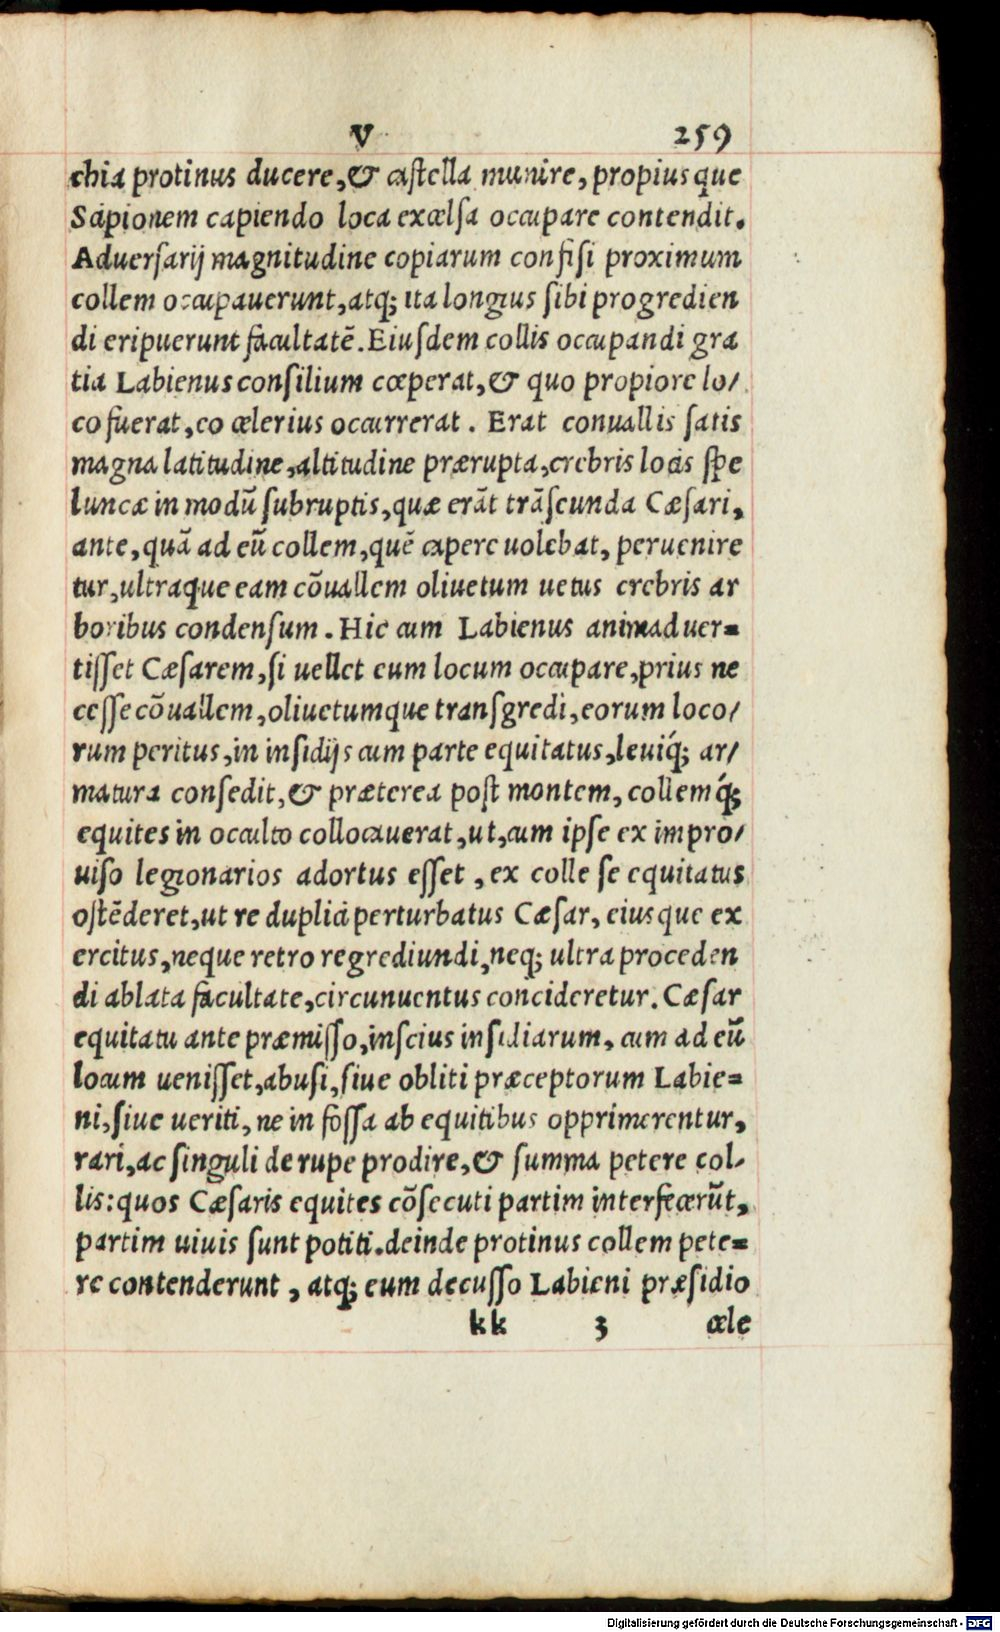 V 259
chia protinus ducere, & castella munire, propiusque
Scipionem capiendo loca excelsa occupare contendit.
Aduersarij magnitudine copiarum confisi proximum
collem occupauerunt, atq; ita longius sibi progredien
di eripuerunt facultatē. Eiusdem collis occupandi gra
tia Labienus consilium cœperat, & quo propiore lo/
co fuerat, eo celerius occurrerat. Erat conuallis satis
magna latitudine, altitudine prærupta, crebris locis spe
luncæ in modū subruptis, quæ erāt trāseunda Cæsari,
ante, quā ad eū collem, quē capere uolebat, peruenire
tur, ultraque eam cōuallem oliuetum uetus crebris ar
boribus condensum. Hic cum Labienus animaduer=
tisset Cæsarem, si uellet eum locum occupare, prius ne
cesse cōuallem, oliuetumque transgredi, eorum loco/
rum peritus, in insidijs cum parte equitatus, leuiq́; ar/
matura consedit, & præterea post montem, collemq́;
equites in occulto collocauerat, ut, cum ipse ex impro/
uiso legionarios adortus esset, ex colle se equitatus
ostēderet, ut re duplici perturbatus Cæsar, eiusque ex
ercitus, neque retro regrediundi, neq; ultra proceden
di ablata facultate, circunuentus concideretur. Cæsar
equitatu ante præmisso, inscius insidiarum, cum ad eū
locum uenisset, abusi, siue obliti præceptorum Labie=
ni, siue ueriti, ne in fossa ab equitibus opprimerentur,
rari, ac singuli de rupe prodire, & summa petere col/
lis: quos Cæsaris equites cōsecuti partim interfecerūt,
partim uiuis sunt potiti. deinde protinus collem pete=
re contenderunt, atq; eum decusso Labieni præsidio
kk 3 cele
Digitalisierung gefördert durch die Deutsche Forschungsgemeinschaft - DFG